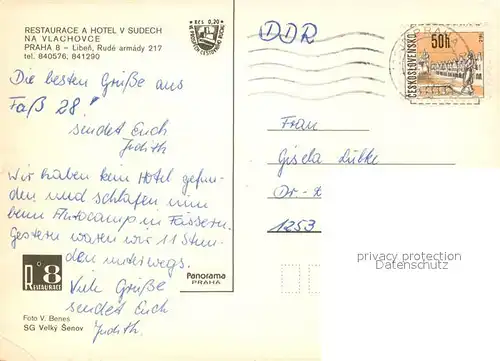 RESTAURACE A HOTEL V SUDECH
NA VLACHOVCE
PRAHA 8 - Libeň, Rudé armády 217
tel. 840576, 841290
Kčs 0,20
Die besten Grüße aus
Faß 28!
sendet Euch
Judith
Wir haben kein Hotel gefun-
den und schlafen nun
beim Autocamp in Fässern.
Gestern waren wir 11 Stun-
den unterwegs.
Viele Grüße
sendet Euch
Judith.
R 8
RESTAURACE
Panorama
PRAHA
Foto V. Beneš
SG Velký Šenov
DDR
PRAHA
50h
ČESKOSLOVENSKO
Frau
Gisela Lübke
Dr.-
1253
privacy protection
privacy protection